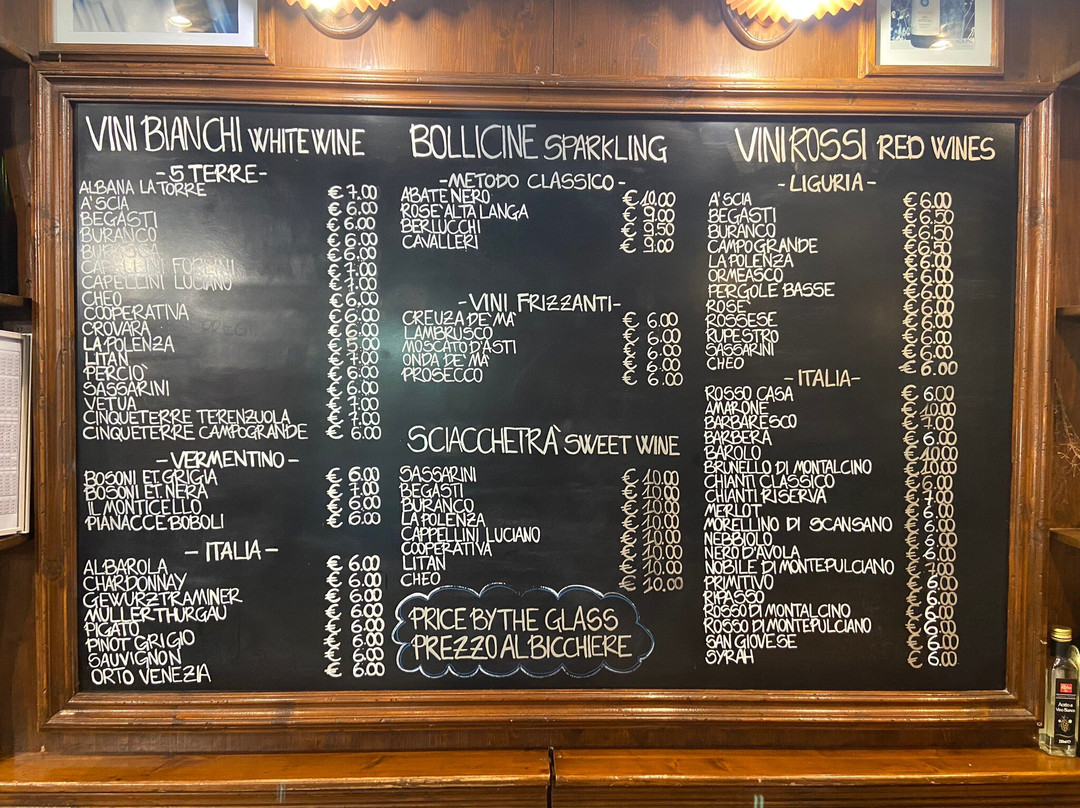 VINI BIANCHI WHITE WINE
-5 TERRE-
ALBANA LA TORRE € 7.00
A'SCIA € 6.00
BEGASTI € 6.00
BURANCO € 6.00
€ 6.00
CAPELLINI FORLINI € 7.00
CAPELLINI LUCIANO € 7.00
CHEO € 6.00
COOPERATIVA € 6.00
CROVARA € 6.00
LA POLENZA
LITAN € 7.00
PERCIO' € 6.00
SASSARINI € 6.00
VETUA
CINQUETERRE TERENZUOLA € 7.00
CINQUETERRE CAMPOGRANDE € 6.00
-VERMENTINO-
BOSONI ET.GRIGIA € 6.00
BOSONI ET.NERA € 7.00
IL MONTICELLO € 6.00
PIANACCE BOBOLI € 6.00
- ITALIA -
ALBAROLA € 6.00
CHARDONNAY € 6.00
GEWURZTRAMINER € 6.00
MÜLLER THURGAU € 6.00
PIGATO € 6.00
PINOT GRIGIO € 6.00
SAUVIGNON € 6.00
ORTO VENEZIA € 6.00
BOLLICINE SPARKLING
-METODO CLASSICO-
ABATE NERO € 10.00
ROSE' ALTA LANGA € 9.00
BERLUCCHI € 9.50
CAVALLERI € 9.00
-VINI FRIZZANTI-
CREUZA DE' MA' € 6.00
LAMBRUSCO € 6.00
MOSCATO D'ASTI € 6.00
ONDA DE' MA' € 6.00
PROSECCO € 6.00
SCIACCHETRÀ SWEET WINE
SASSARINI € 10.00
BEGASTI € 10.00
BURANCO € 10.00
LA POLENZA € 10.00
CAPPELLINI LUCIANO € 10.00
COOPERATIVA € 10.00
LITAN € 10.00
CHEO € 10.00
PRICE BY THE GLASS
PREZZO AL BICCHIERE
VINI ROSSI RED WINES
-LIGURIA-
A'SCIA € 6.00
BEGASTI € 6.50
BURANCO € 6.50
CAMPOGRANDE € 6.50
LA POLENZA € 6.00
ORMEASCO € 6.00
PERGOLE BASSE € 6.00
ROSE' € 6.00
ROSSESE € 6.00
RUPESTRO € 6.00
SASSARINI € 6.00
CHEO € 6.00
-ITALIA-
ROSSO CASA € 6.00
AMARONE € 10.00
BARBARESCO € 7.00
BARBERA € 6.00
BAROLO € 10.00
BRUNELLO DI MONTALCINO € 10.00
CHIANTI CLASSICO € 6.00
CHIANTI RISERVA € 7.00
MERLOT € 6.00
MORELLINO DI SCANSANO € 6.00
NEBBIOLO € 6.00
NERO D'AVOLA € 6.00
NOBILE DI MONTEPULCIANO € 7.00
PRIMITIVO € 6.00
RIPASSO € 6.00
ROSSO DI MONTALCINO € 6.00
ROSSO DI MONTEPULCIANO € 6.00
SAN GIOVESE € 6.00
SYRAH € 6.00